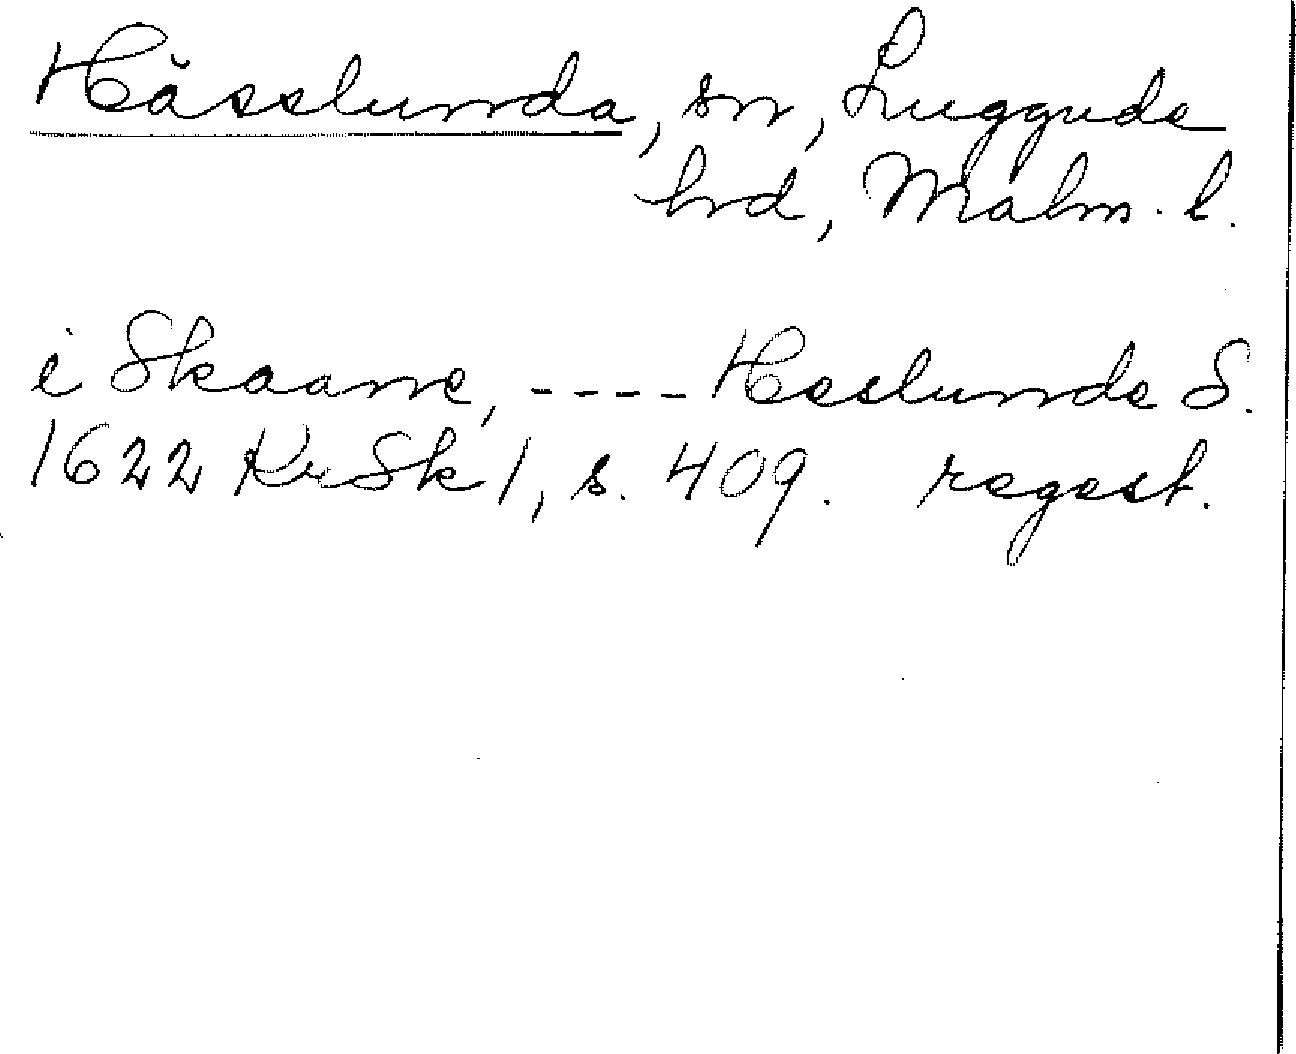 Hässlunda, sn, Luggude
hrd, Malm. l.
i Skaane, ---- Heslunde S.
1622 KrSk 1, s. 409. regest.